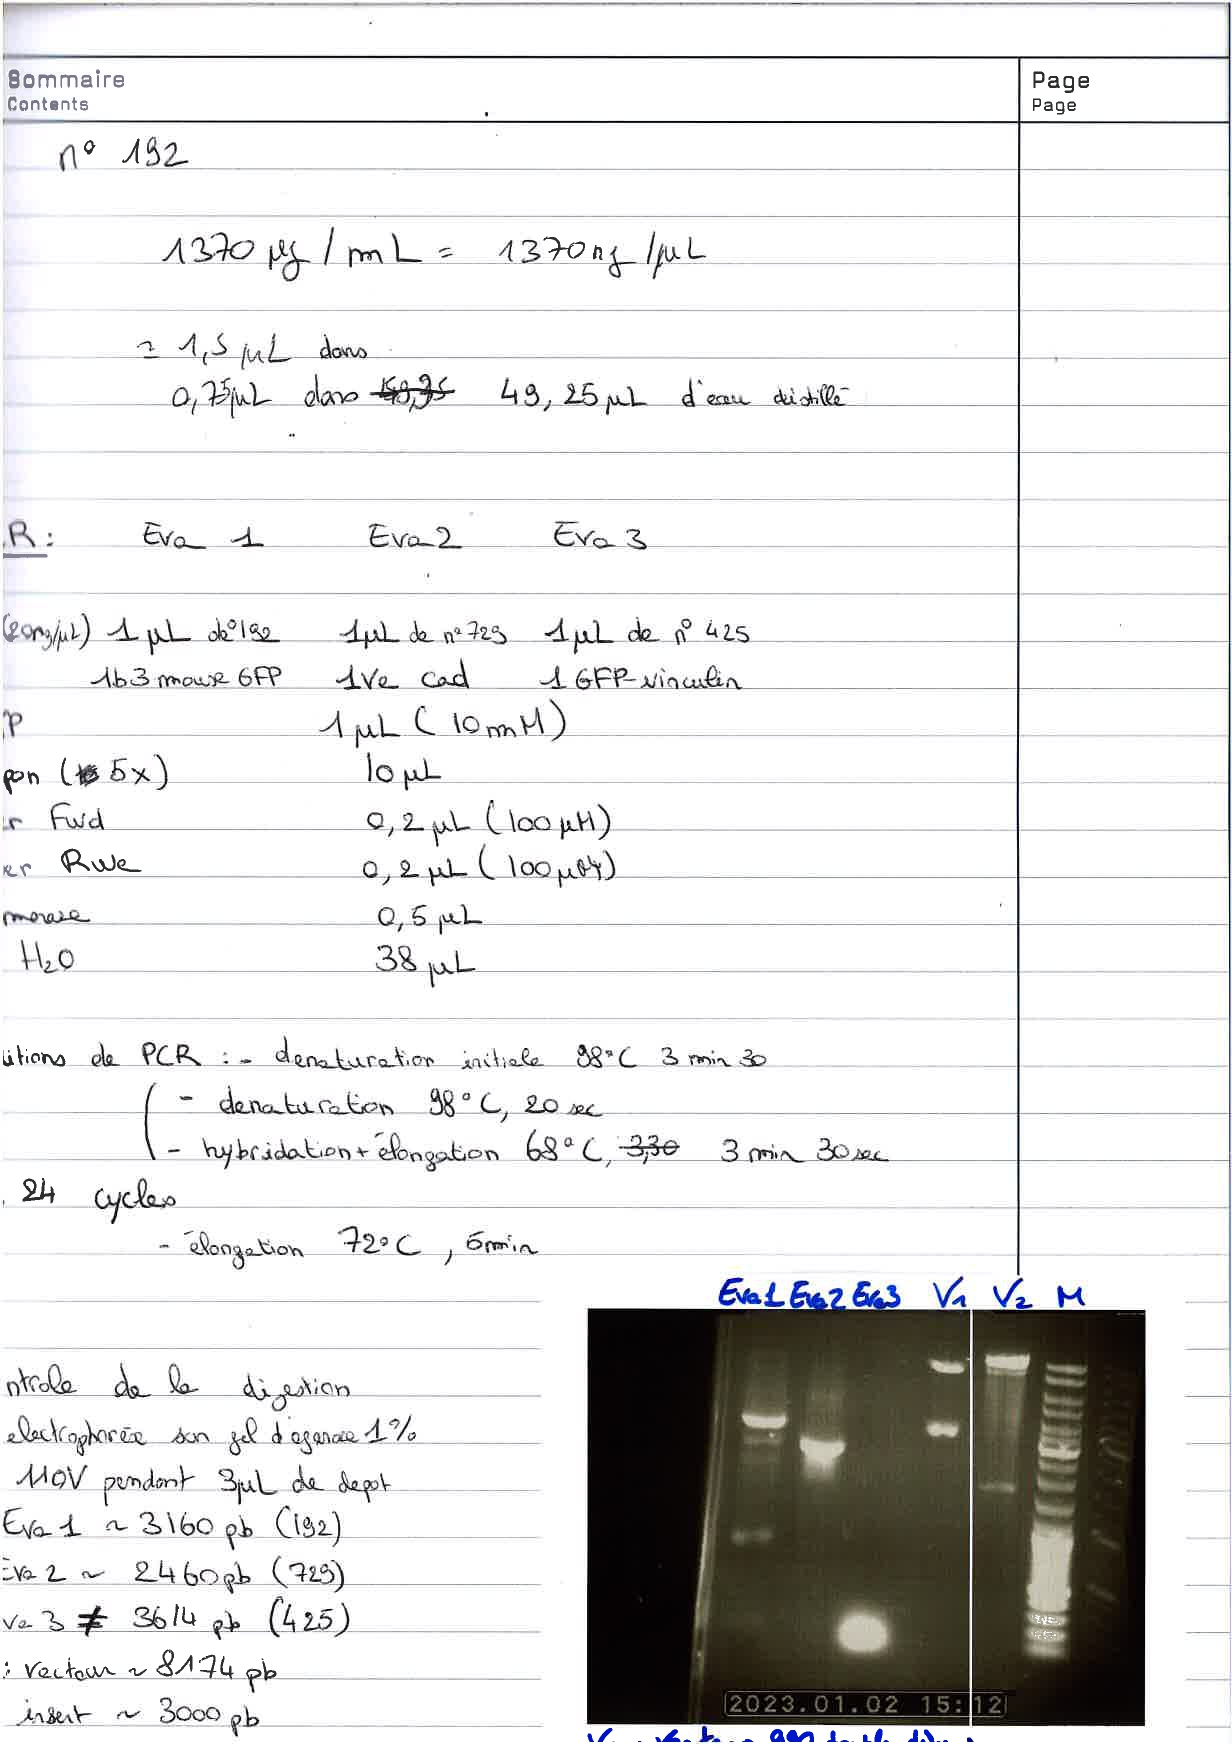 Sommaire
Contents
Page
Page
n° 192
1370 µg/mL = 1370 ng/µL
= 1,5 µL dans
0,75 µL dans 49,25 µL d'eau distillé
R : Eva 1 Eva 2 Eva 3
(20ng/µL) 1 µL de n°192 1µL de n° 729 1µL de n° 425
1b3 mouse GFP 1 Ve cad 1 GFP-vinculin
P 1 µL (10 mM)
pon (5x) 10 µL
r Fwd 0,2 µL (100 µM)
er Rve 0,2 µL (100 µM)
merase 0,5 µL
H2O 38 µL
itions de PCR : - denaturation initiale 98°C 3 min 30
- denaturation 98°C, 20 sec
- hybridation + élongation 68°C, 3,30 3 min 30 sec
24 cycles
- élongation 72°C, 5min
Eva 1 Eva 2 Eva 3 V1 V2 M
ntrole de la digestion
electrophorèse sur gel d'agarose 1%
110V pendant 3µL de depot
Eva 1 ~ 3160 pb (192)
Eva 2 ~ 2460 pb (729)
va 3 ≠ 3614 pb (425)
: vecteur ~ 8174 pb
insert ~ 3000 pb
2023.01.02 15:12